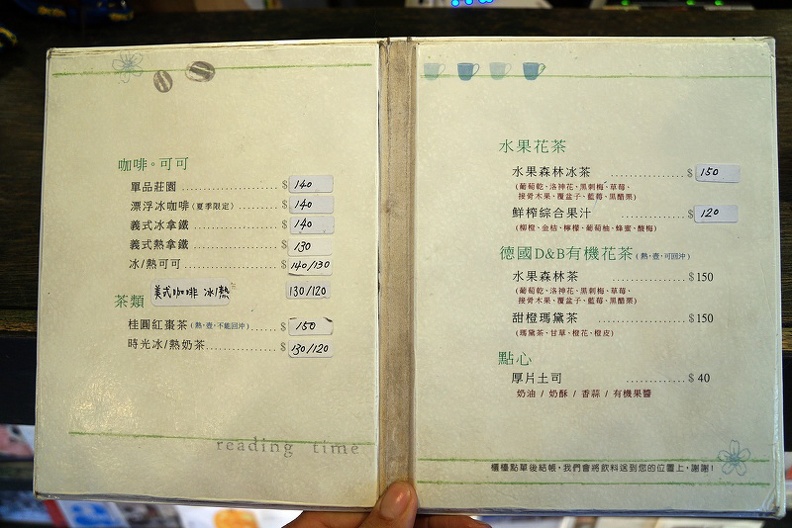 咖啡。可可
單品莊園 .................. $ 140
漂浮冰咖啡(夏季限定) ........ $ 140
義式冰拿鐵 ................ $ 140
義式熱拿鐵 ................ $ 130
冰/熱可可 ................. $ 140/130
美式咖啡 冰/熱 130/120
茶類
桂圓紅棗茶(熱,壺,不能回沖) ...... $ 150
時光冰/熱奶茶 .............. $ 130/120
reading time
水果花茶
水果森林冰茶 ............... $ 150
(葡萄乾、洛神花、黑刺梅、草莓、
接骨木果、覆盆子、藍莓、黑醋栗)
鮮榨綜合果汁 ............... $ 120
(柳橙、金桔、檸檬、葡萄柚、蜂蜜、酸梅)
德國D&B有機花茶(熱,壺,可回沖)
水果森林茶 ................ $150
(葡萄乾、洛神花、黑刺梅、草莓、
接骨木果、覆盆子、藍莓、黑醋栗)
甜橙瑪黛茶 ................ $150
(瑪黛茶、甘草、橙花、橙皮)
點心
厚片土司 ............... $ 40
奶油 / 奶酥 / 香蒜 / 有機果醬
櫃檯點單後結帳,我們會將飲料送到您的位置上,謝謝!